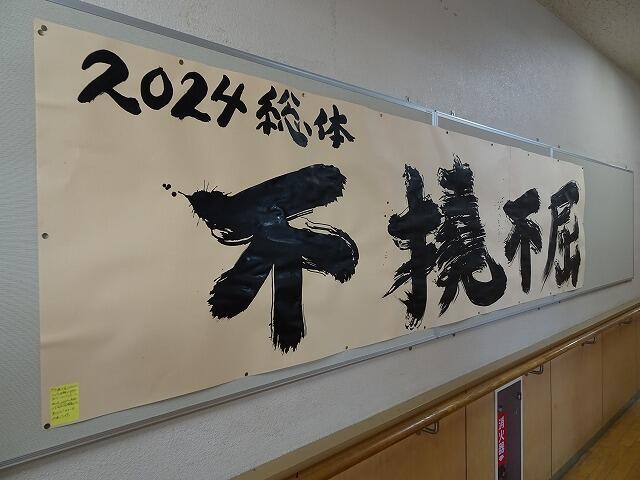 2024総体
不撓不屈
消火器